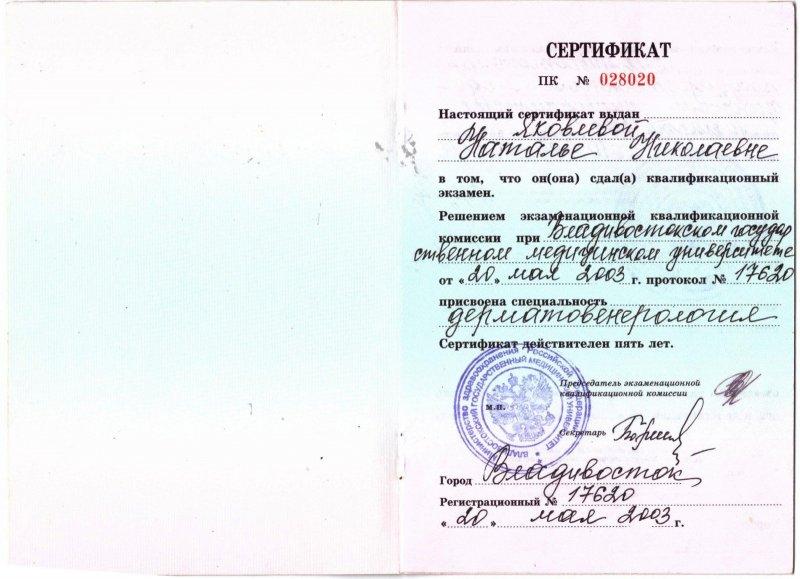 СЕРТИФИКАТ
ПК № 028020
Настоящий сертификат выдан
Яковлевой
Наталье Николаевне
в том, что он(она) сдал(а) квалификационный
экзамен.
Решением экзаменационной квалификационной
комиссии при Владивостокском государ
ственном медицинском университете
от «20» мая 2003 г. протокол № 17620
присвоена специальность
дерматовенерология
Сертификат действителен пять лет.
Председатель экзаменационной
квалификационной комиссии
М.П.
Секретарь
Город Владивосток
Регистрационный № 17620
«20» мая 2003 г.